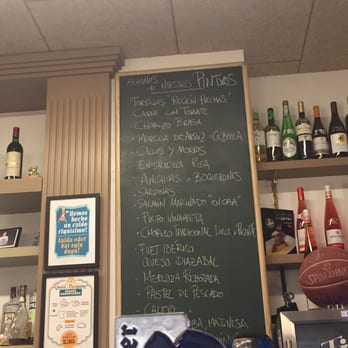 ALGUNOS
de NUESTROS PINTXOS
TORTILLAS "RECIÉN HECHAS"
- CARNE CON TOMATE
- CHORIZO BRASA
- MORCILLA DE ARROZ o CEBOLLA
- CALLOS Y MORROS
- ENSALADILLA RUSA
- ANCHOAS o BOQUERONES
- SARDINAS
- SALMÓN MARINADO "EN CASA"
- PULPO VINAGRETA
- CHORIZO TRADICIONAL DULCE o PICANTE
- FUET IBÉRICO
QUESO IDIAZABAL
- MERLUZA REBOZADA
- PASTEL DE PESCADO
- CALDO
MAHONESA
¡Hemos
hecho
un caldo
riquísimo!
Salda eder
bai egin
dugu!
2,50
SPALDING